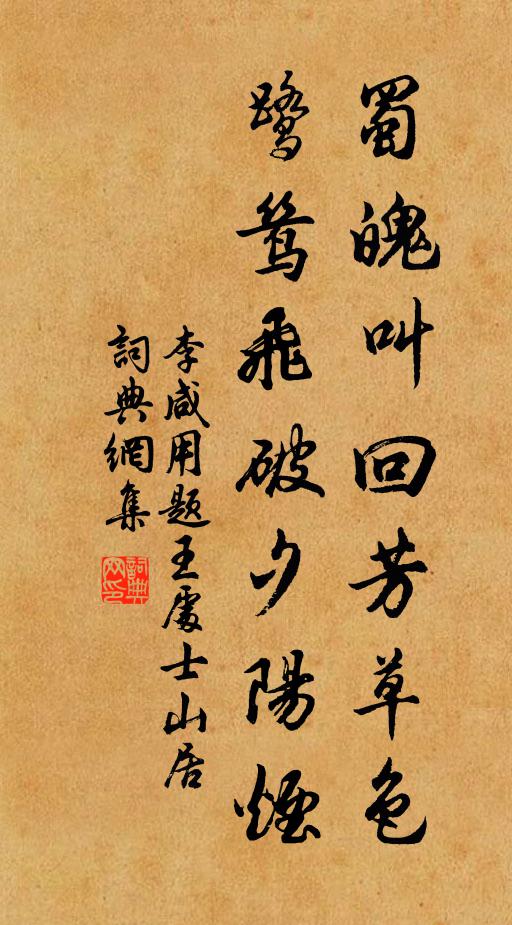 蜀魄叫回芳草色
鷺鴛飛破夕陽煙
李咸用題王處士山居
詞典網集
詞典網印